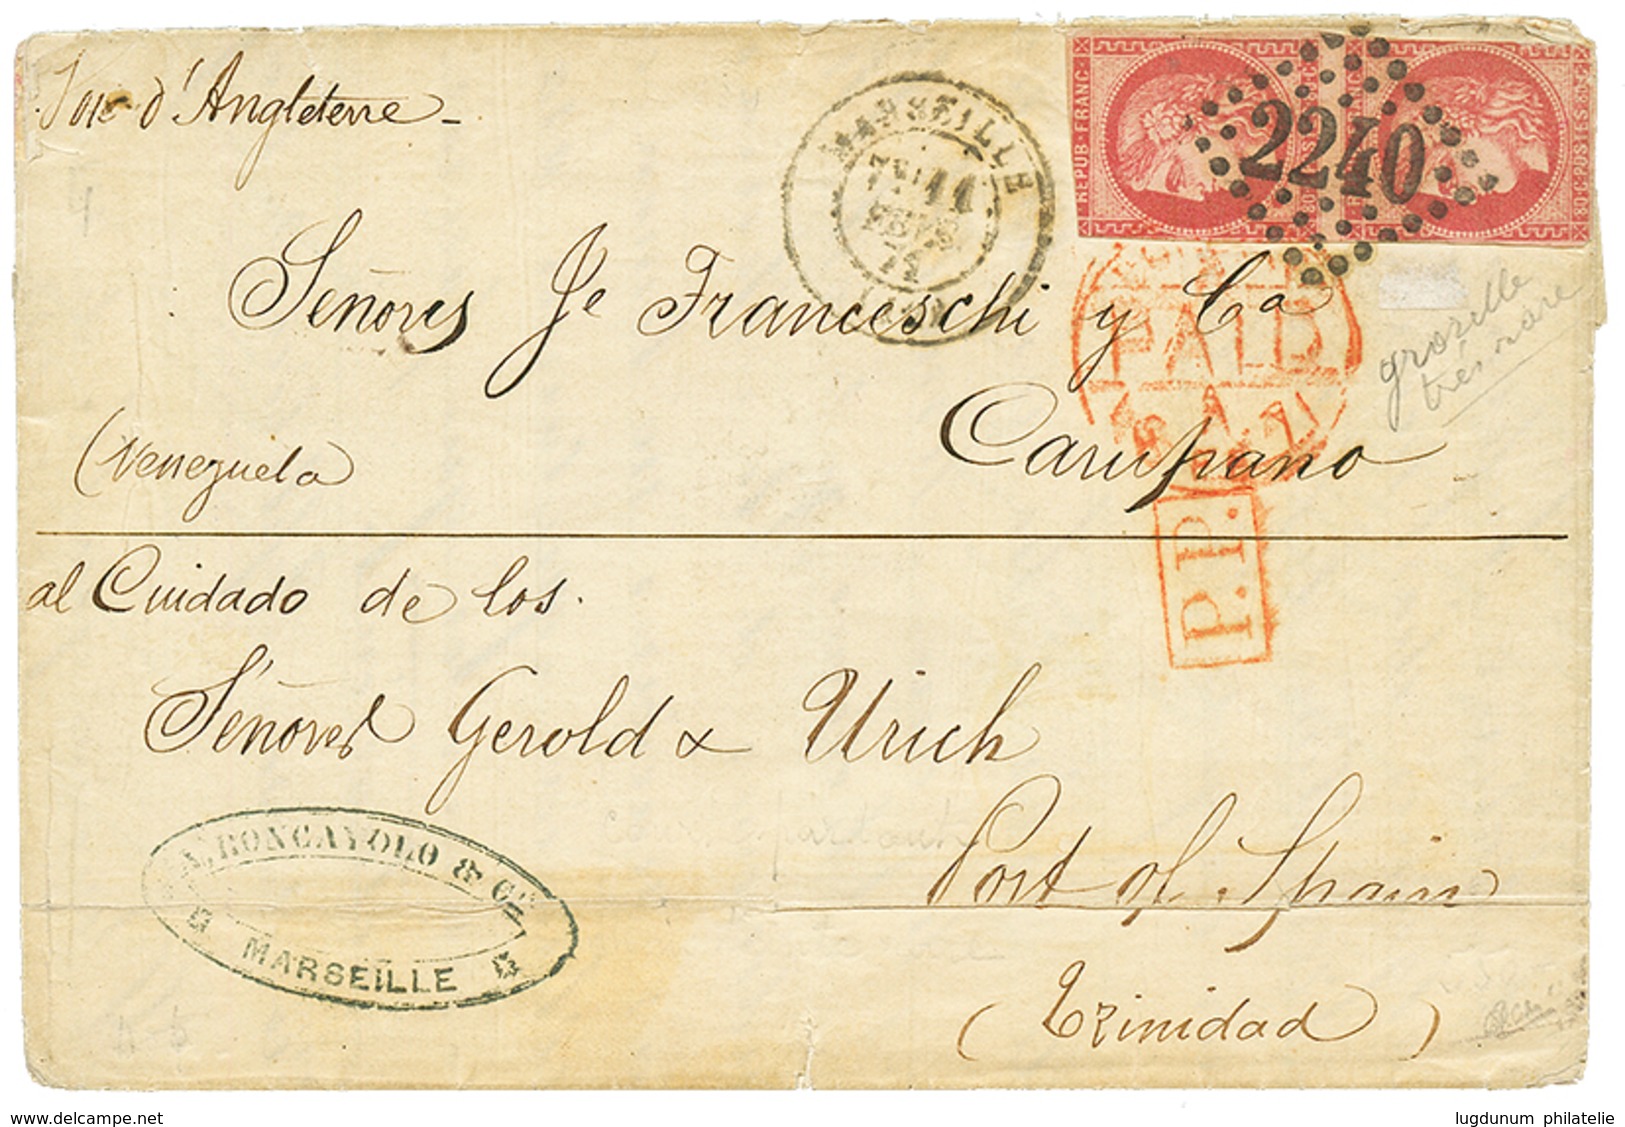 Voie d'Angleterre
MARSEILLE
11
FEVR.
REPUB · FRANC ·
80 · C · POSTES · 80 · C
2240
Señores Je Franceschi y Ca
PAID
groseille
très rare
Carupano
(Venezuela
P.P.
al Cuidado de los.
Señores Gerold & Urich
Port of Spain
(Trinidad)
BONCAYOLO & CIE
MARSEILLE
www.delcampe.net
lugdunum philatelie